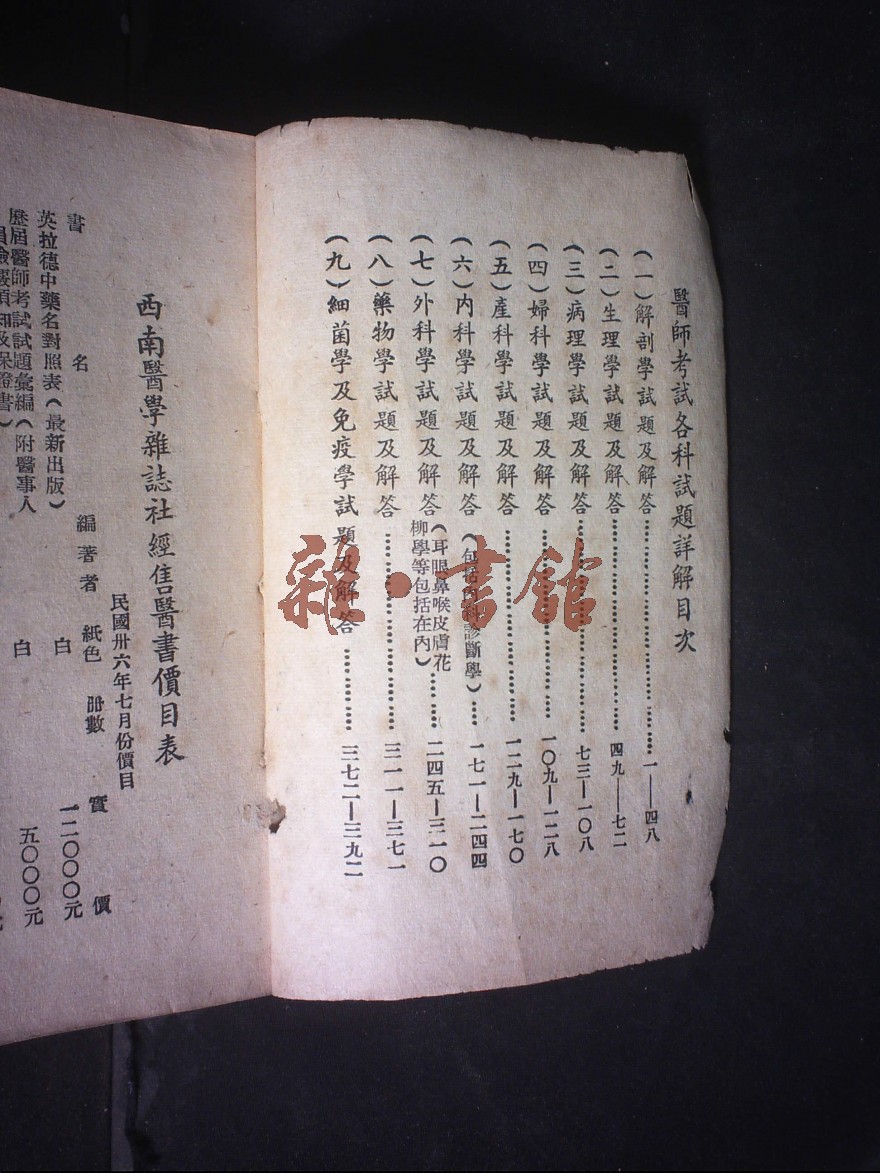 醫師考試各科試題詳解目次
(一)解剖學試題及解答……一——四八
(二)生理學試題及解答……四九——七二
(三)病理學試題及解答……七三—一〇八
(四)婦科學試題及解答……一〇九—一二八
(五)產科學試題及解答……一二九—一七〇
(六)內科學試題及解答(包括內科診斷學)……一七一—二四四
(七)外科學試題及解答(耳眼鼻喉皮膚花柳學等包括在內)……二四五—三一〇
(八)藥物學試題及解答……三一一—三七一
(九)細菌學及免疫學試題及解答……三七二—三九二
西南醫學雜誌社經售醫書價目表
民國卅六年七月份價目
書名 編著者 紙色 册數 實價
英拉德中藥名對照表(最新出版) 白 一二〇〇〇元
歷屆醫師考試試題彙編(附醫事人 白 五〇〇〇元
須知及保證書)
雜·書館